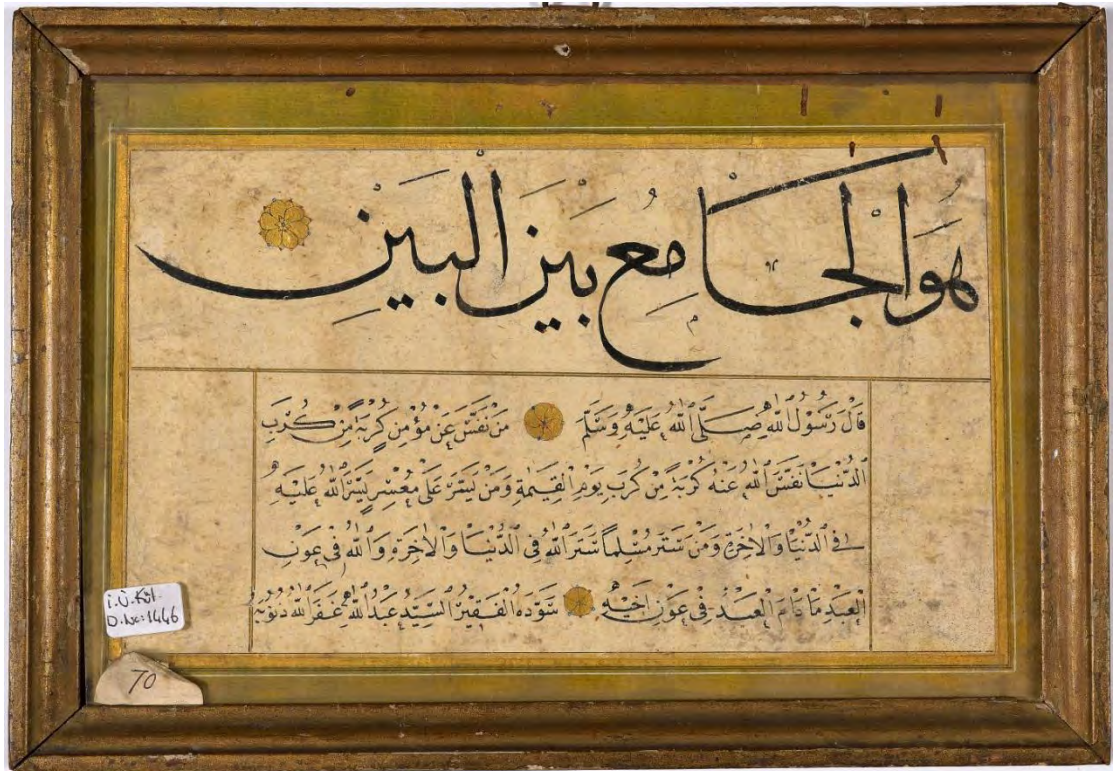 هُوَ الْجَامِعُ بَيْنَ الْبَيْنِ
قَالَ رَسُولُ اللّٰهِ صَلَّى اللّٰهُ عَلَيْهِ وَسَلَّمَ مَنْ نَفَّسَ عَنْ مُؤْمِنٍ كُرْبَةً مِنْ كُرَبِ
الدُّنْيَا نَفَّسَ اللّٰهُ عَنْهُ كُرْبَةً مِنْ كُرَبِ يَوْمِ الْقِيٰمَةِ وَمَنْ يَسَّرَ عَلٰى مُعْسِرٍ يَسَّرَ اللّٰهُ عَلَيْهِ
فِى الدُّنْيَا وَالْاٰخِرَةِ وَمَنْ سَتَرَ مُسْلِمًا سَتَرَ اللّٰهُ فِى الدُّنْيَا وَالْاٰخِرَةِ وَاللّٰهُ فِى عَوْنِ
الْعَبْدِ مَا دَامَ الْعَبْدُ فِى عَوْنِ اَخِيهِ سَوَّدَهُ الْفَقِيرُ السَّيِّدُ عَبْدُ اللّٰهِ غَفَرَ اللّٰهُ ذُنُوبَهُ
İ.Ü.Küt.
D.No:1446
70